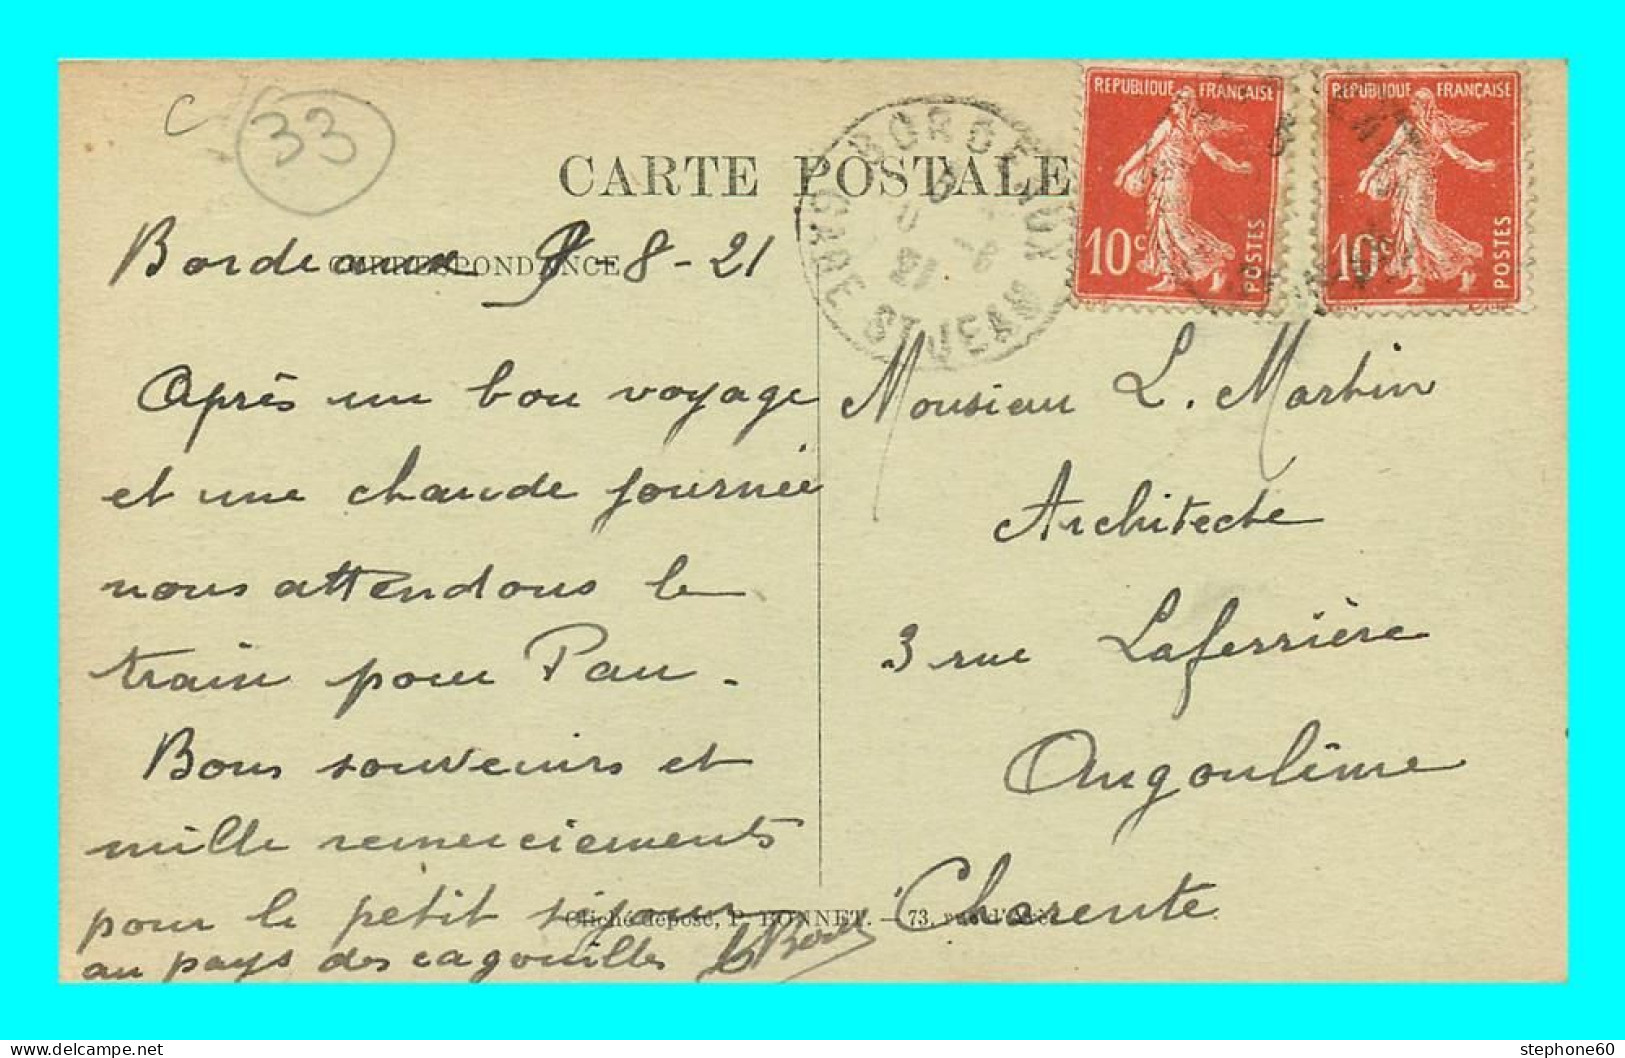 C
33
CARTE POSTALE
CORRESPONDANCE
BORDEAUX
GARE ST JEAN
RÉPUBLIQUE FRANÇAISE
10c
POSTES
RÉPUBLIQUE FRANÇAISE
10c
POSTES
Bordeaux 9-8-21
Après un bon voyage
et une chaude journée
nous attendons le
train pour Pau.
Bons souvenirs et
mille remerciements
pour le petit séjour
au pays des cagouilles
Monsieur L. Martin
Architecte
3 rue Laferrière
Angoulême
Charente
Cliché déposé, P. BONNET. — 73, rue d'Arès
stephone60